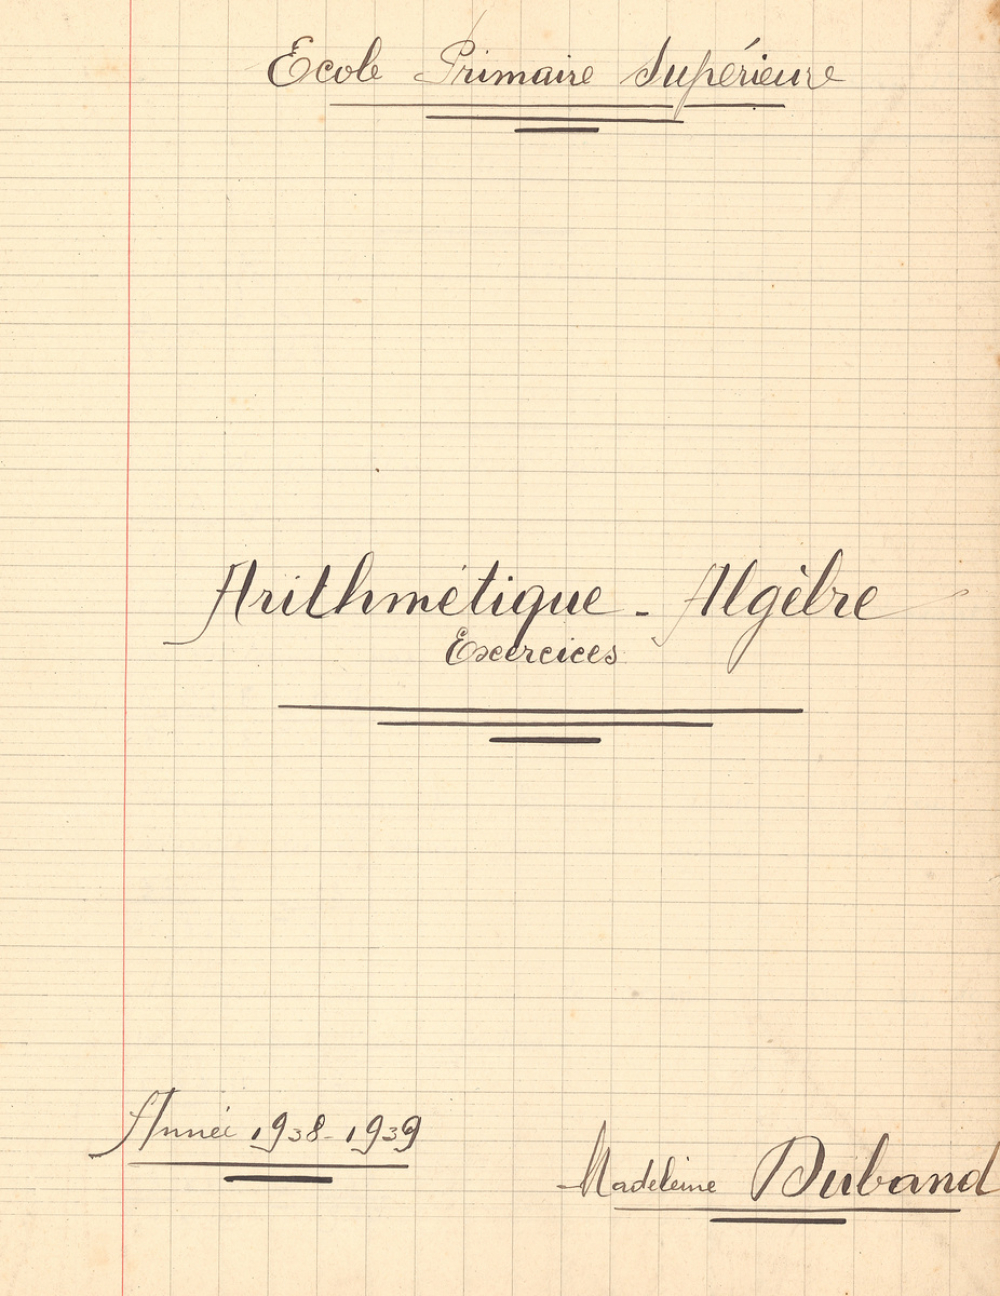 Ecole Primaire Supérieure
Arithmétique - Algèbre
Exercices
Année 1938-1939
Madeleine Duband